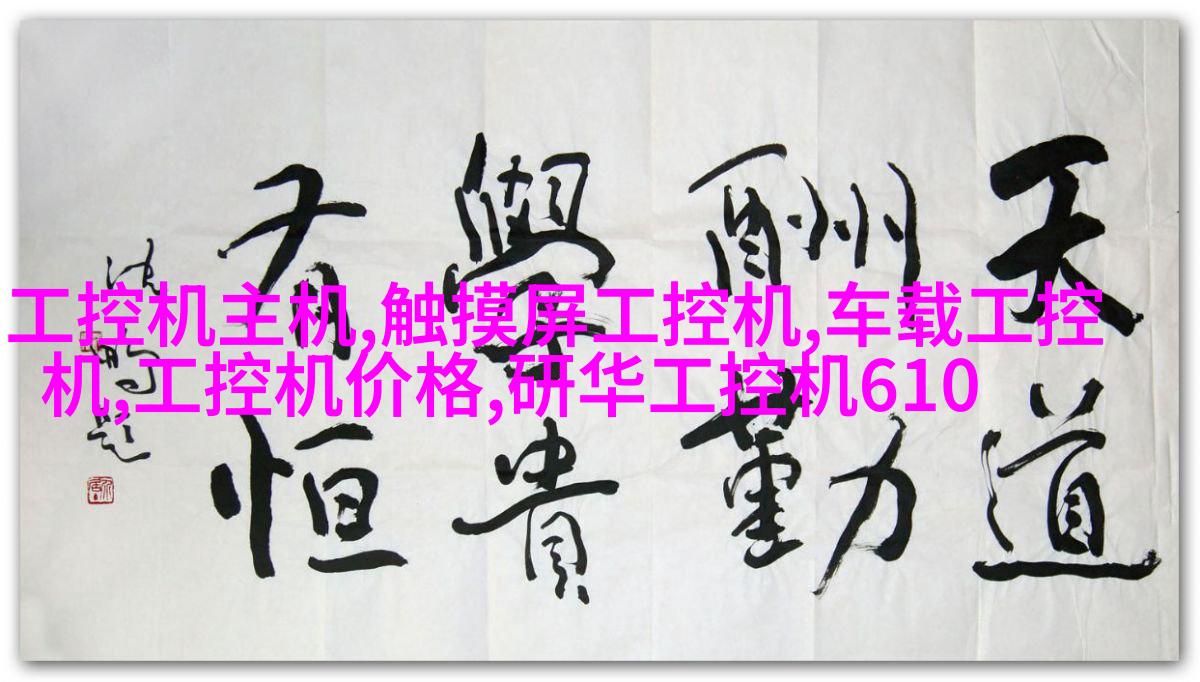 天道
酬勤
學貴
有恒
沈鹏题
工控机主机,触摸屏工控机,车载工控
机,工控机价格,研华工控机610